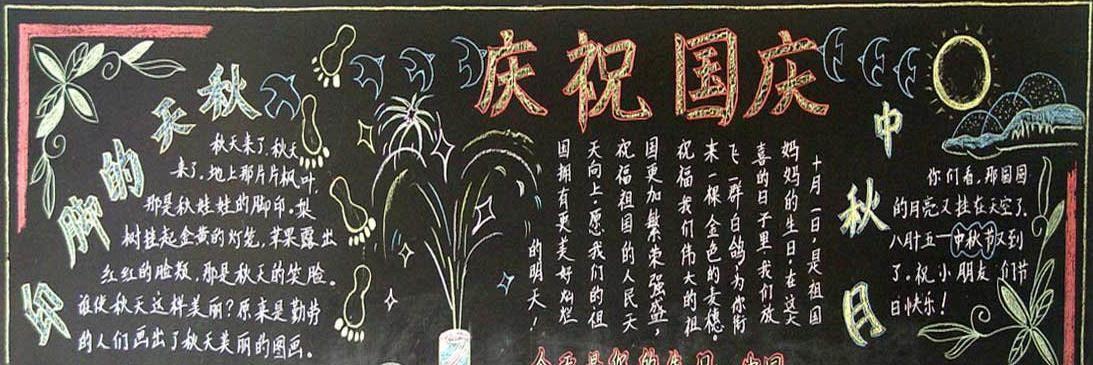 庆祝国庆
秋天的脚印
秋天来了，秋天
来了。地上那片片枫叶，
那是秋娃娃的脚印。梨
树挂起金黄的灯笼，苹果露出
红红的脸颊，那是秋天的笑脸。
谁使秋天这样美丽？原来是勤劳
的人们画出了秋天美丽的图画。
十月一日，是祖国
妈妈的生日，在这大
喜的日子里，我们放
飞一群白鸽，为你衔
来一棵金色的麦穗。
祝福我们伟大的祖
国更加繁荣强盛，
祝福祖国的人民天
天向上，愿我们的祖
国拥有更美好灿烂
的明天！
中秋日
你们看，那圆圆
的月亮又挂在天空了，
八月十五—中秋节又到
了。祝小朋友们节
日快乐！